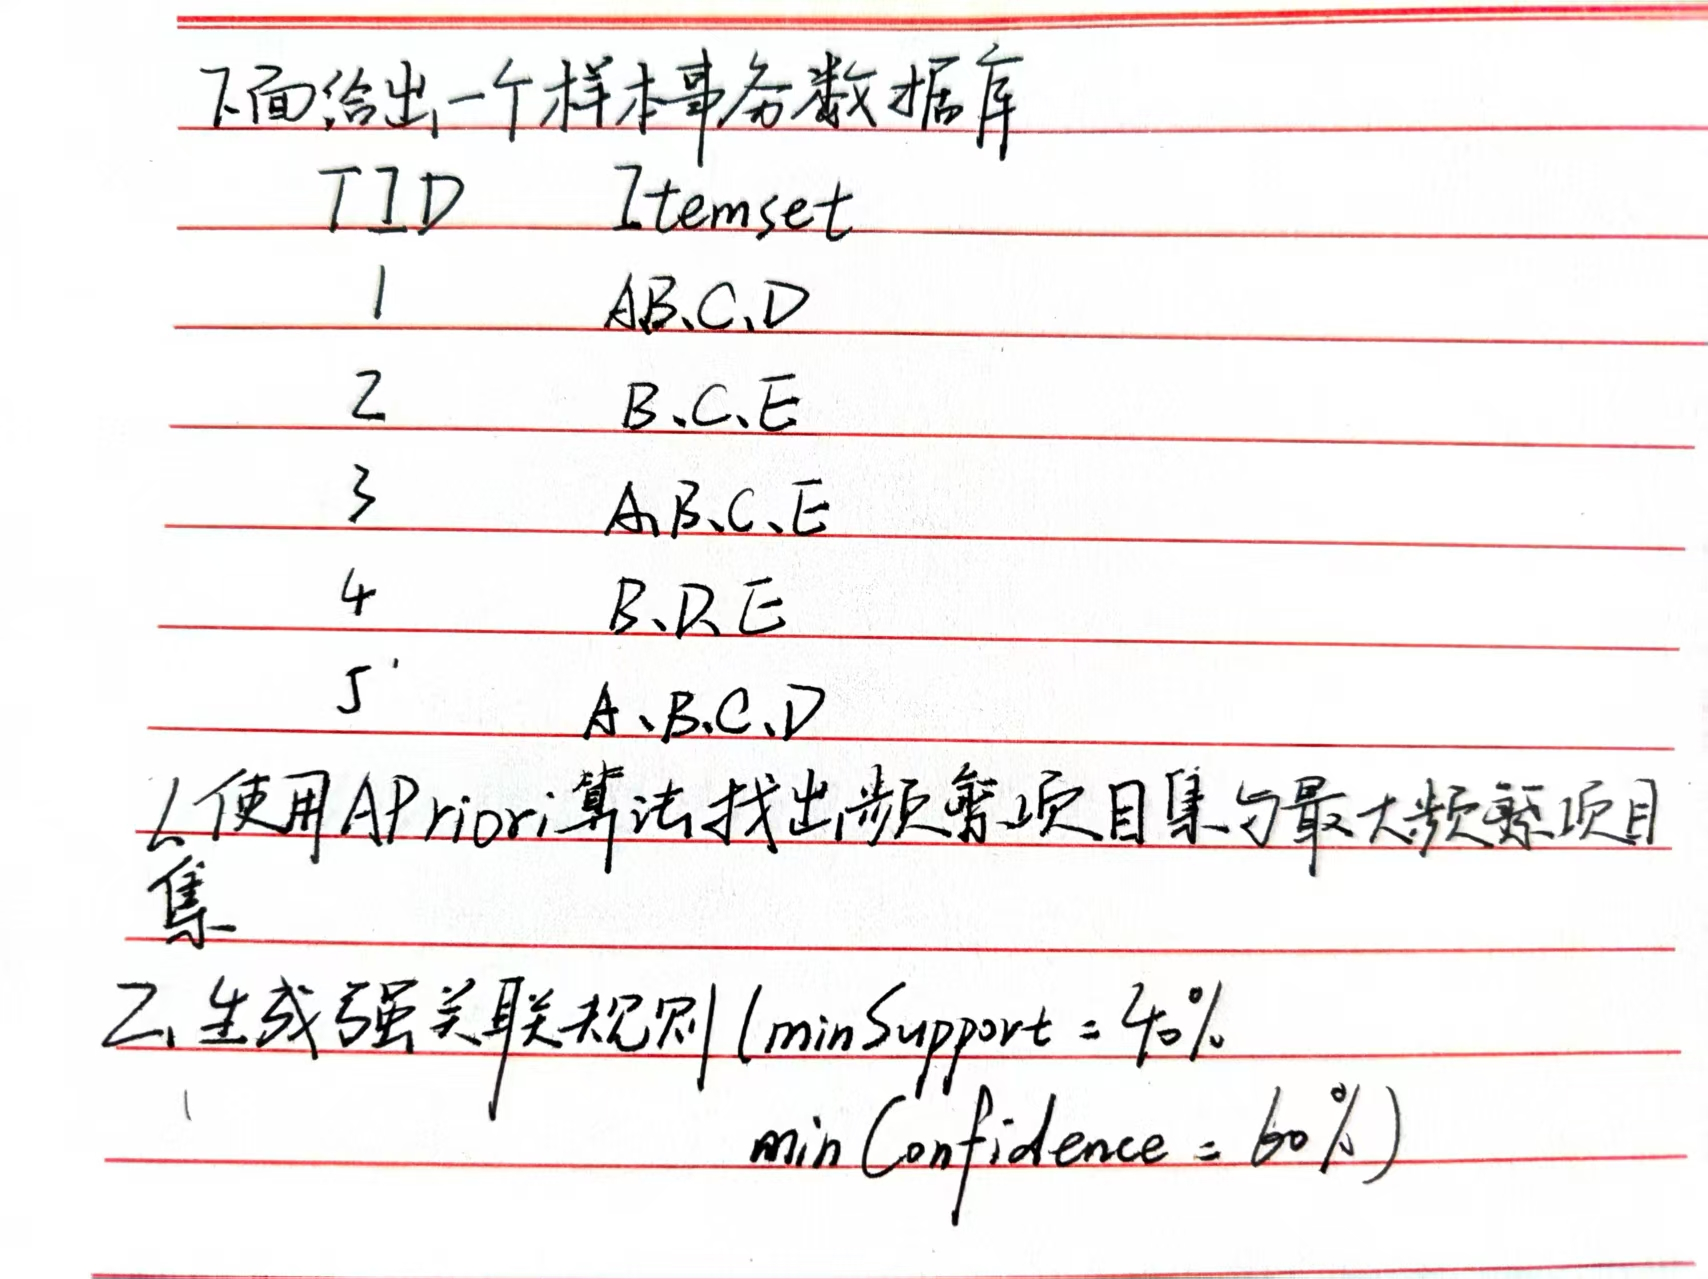 下面给出一个样本事务数据库
TID Itemset
1 A、B、C、D
2 B、C、E
3 A、B、C、E
4 B、D、E
5 A、B、C、D
1、使用APriori算法找出频繁项目集与最大频繁项目
集
2、生成强关联规则(minSupport=40%
minConfidence=60%)